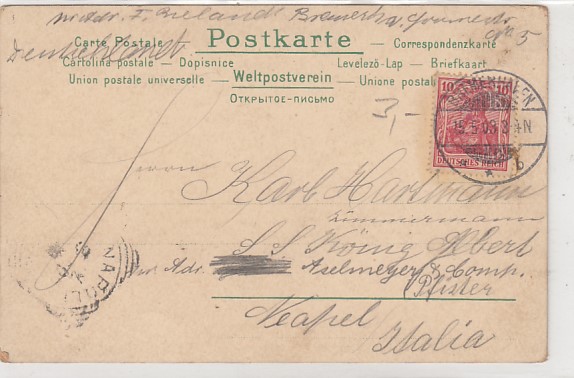 p. Adr. F. Wieland Bremerh.
Deutschland
№ 5
Carte Postale
Postkarte
Correspondenzkarte
Cartolina postale - Dopisnice
Levelező-Lap - Briefkaart
Union postale universelle - Weltpostverein - Unione postale
Открытое-письмо
3,-
10 10
DEUTSCHES REICH
BREMERHAVEN
b
Herrn
Karl Hartmann
Zimmermann
S S König Albert
per Adr. Aselmeyer & Comp.
(Pfister
Neapel
Italia
NAPOLI